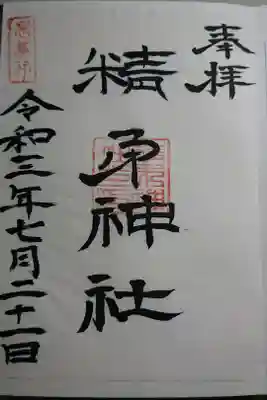 奉拝
精矛神社
令和三年七月二十一日